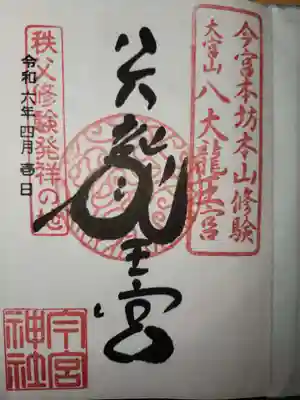 今宮本坊本山修験
大宮山
八大龍王宮
八大龍王宮
秩父修験発祥の地
令和六年四月壱日
今宮神社